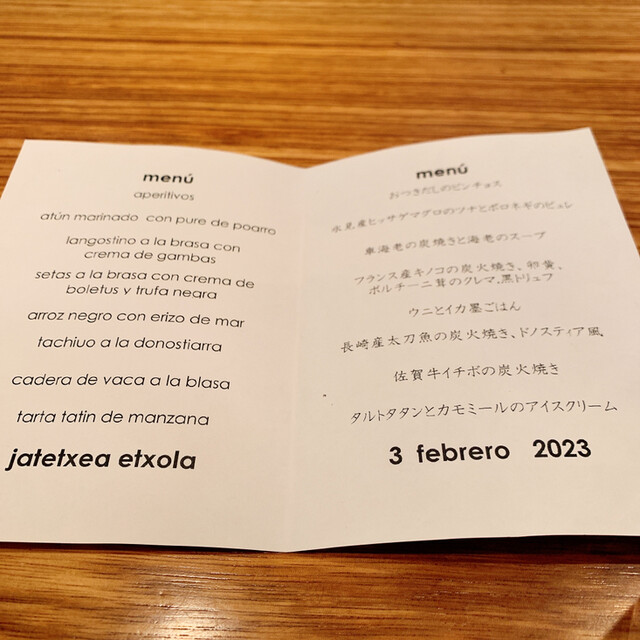 menú
aperitivos
atún marinado con pure de poarro
langostino a la brasa con
crema de gambas
setas a la brasa con crema de
boletus y trufa negra
arroz negro con erizo de mar
tachiuo a la donostiarra
cadera de vaca a la blasa
tarta tatin de manzana
jatetxea etxola
menú
おつきだしのピンチョス
氷見産ヒッサゲマグロのツナとポロネギのピュレ
車海老の炭焼きと海老のスープ
フランス産キノコの炭火焼き、卵黄、
ポルチーニ茸のクレマ,黒トリュフ
ウニとイカ墨ごはん
長崎産太刀魚の炭火焼き、ドノスティア風,
佐賀牛イチボの炭火焼き
タルトタタンとカモミールのアイスクリーム
3 febrero 2023